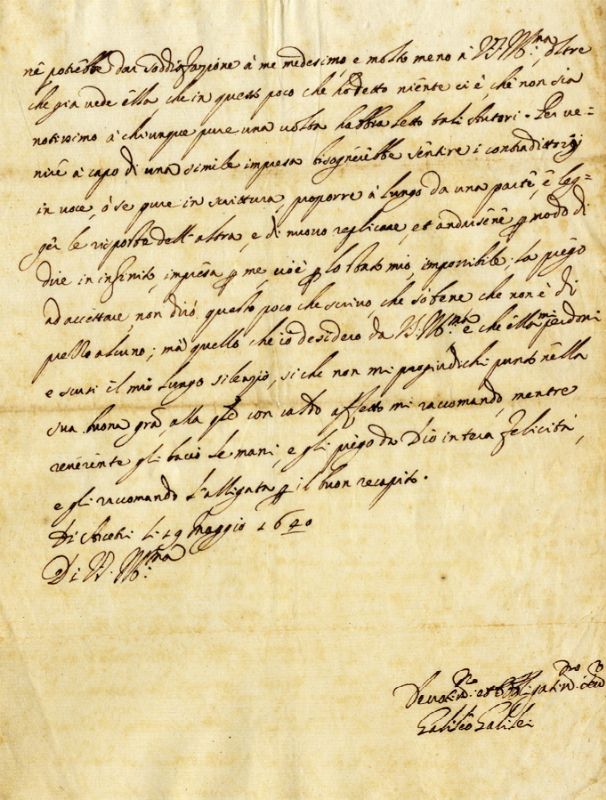 nè potrebbe dar soddisfazione à me medesimo, e molto meno à V. S. M. Ill.ma, oltre
che già vede ella, che in questo poco che hò detto niente ci è che non sia
notissimo à chiunque pure una volta habbia letto tali Autori. Per ve-
nire à capo di una simile impresa bisognerebbe sentire i contradittorij
in voce, ò se pure in scrittura, proporre à lungo da una parte, e leg-
ger le risposte dell'altra, e di nuovo replicare, et andarsene p modo di
dire in infinito, impresa p me, cioè p lo stato mio, impossibile. La prego
ad accettare, non dirò questo poco che scrivo, che sò bene che non è di
prezzo alcuno; mà quello che io desidero da e che ella mi perdoni
e scusi il mio lungo silenzio, si che non mi progiudichi punto nella
sua buona grã, alla qle con caldo affetto mi raccomando, mentre
reverente gli bacio le mani, e gli prego da Dio intera felicità,
e gli raccomando l'alligata p il buon recapito.
Di Arcetri li 19 maggio 1640
Di V.
Devotiss. et Obligatiss.
Galileo Galilei